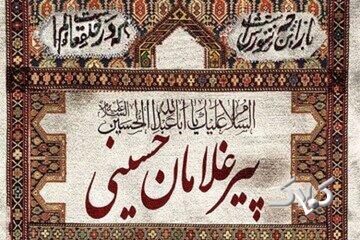 باز این چه شورش است
که در خلق عالم است
السلام علیک یا اباعبدالله الحسین
پیرغلامان حسینی